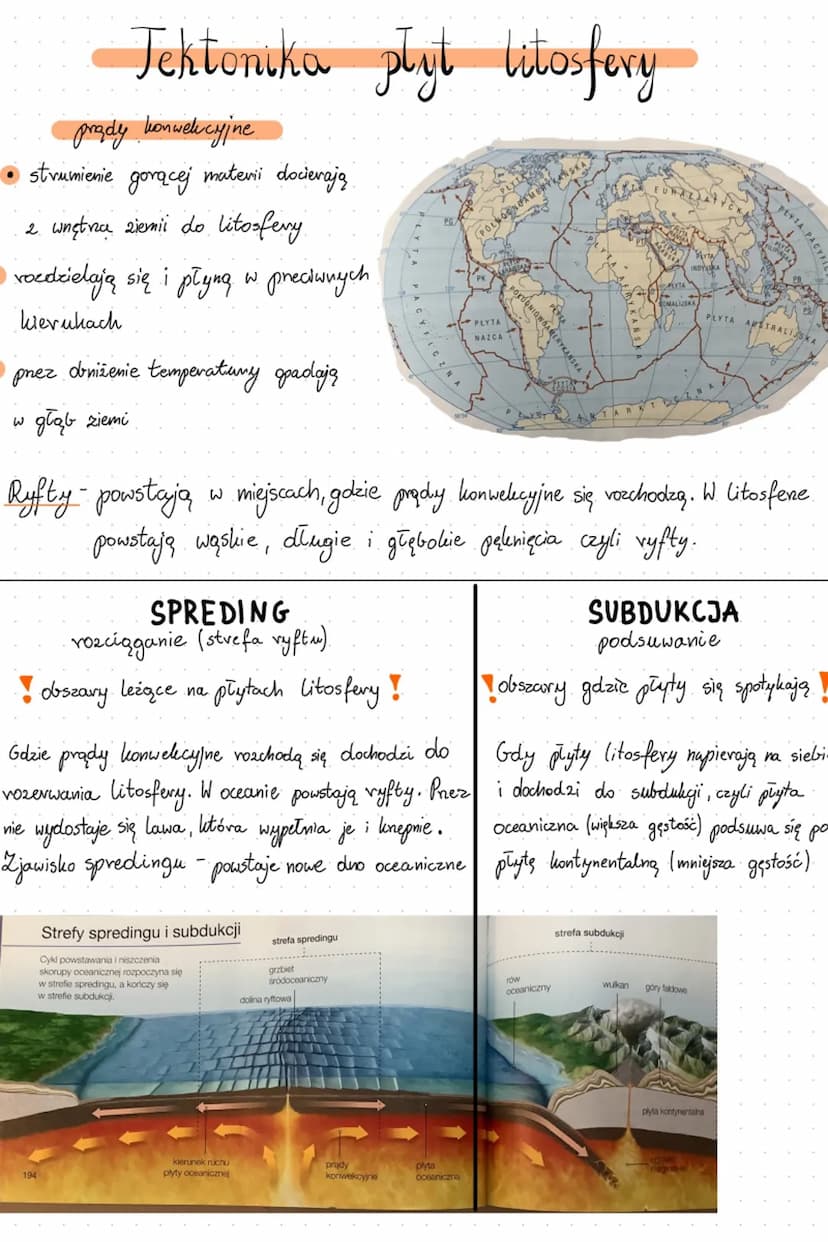 Tektonika płyt litosfery
prądy konwekcyjne
• strumienie gorącej materii docierają
z wnętrza ziemii do litosfery
rozdzielają się i płyną w przeciwnych
kierunkach
przez obniżenie temperatury opadają
w głąb ziemi
PŁYTA PACYFICZNA
PŁYTA
NAZCA
PK
PŁYTA
INDYJSKA
PŁYTA
SOMALIJSKA
PŁYTA AUSTRALIJSKA
PB
Ryfty - powstają w miejscach, gdzie prądy konwekcyjne się rozchodzą. W litosferze
powstają wąskie, długie i głębokie pęknięcia czyli ryfty.
SPREDING
rozciąganie (strefa ryftu)
! obszary leżące na płytach litosfery !
Gdzie prądy konwekcyjne rozchodzą się dochodzi do
rozerwania litosfery. W oceanie powstają ryfty. Przez
nie wydostaje się lawa, która wypełnia je i krzepnie.
Zjawisko spredingu - powstaje nowe dno oceaniczne
SUBDUKCJA
podsuwanie
! obszary gdzie płyty się spotykają !
Gdy płyty litosfery napierają na siebi
i dochodzi do subdukcji, czyli płyta
oceaniczna (większa gęstość) podsuwa się po
płytę kontynentalną (mniejsza gęstość)
Strefy spredingu i subdukcji
Cykl powstawania i niszczenia
skorupy oceanicznej rozpoczyna się
w strefie spredingu, a kończy się
w strefie subdukcji.
strefa spredingu
grzbiet
śródoceaniczny
dolina ryftowa
strefa subdukcji
rów
oceaniczny
wulkan
góry fałdowe
płyta kontynentalna
kierunek ruchu
płyty oceanicznej
prądy
konwekcyjne
płyta
oceaniczna
194